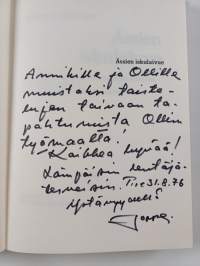 Ässien iskulaivue
Annikille ja Ollille
muistoksi taiste-
lujen laivaan ta-
pahtumista Ollin
työmaalla!
Kaikkea hyvää!
Lämpöisin lentäjä-
terveisin. T:re 31.8.76
Ystävyydellä